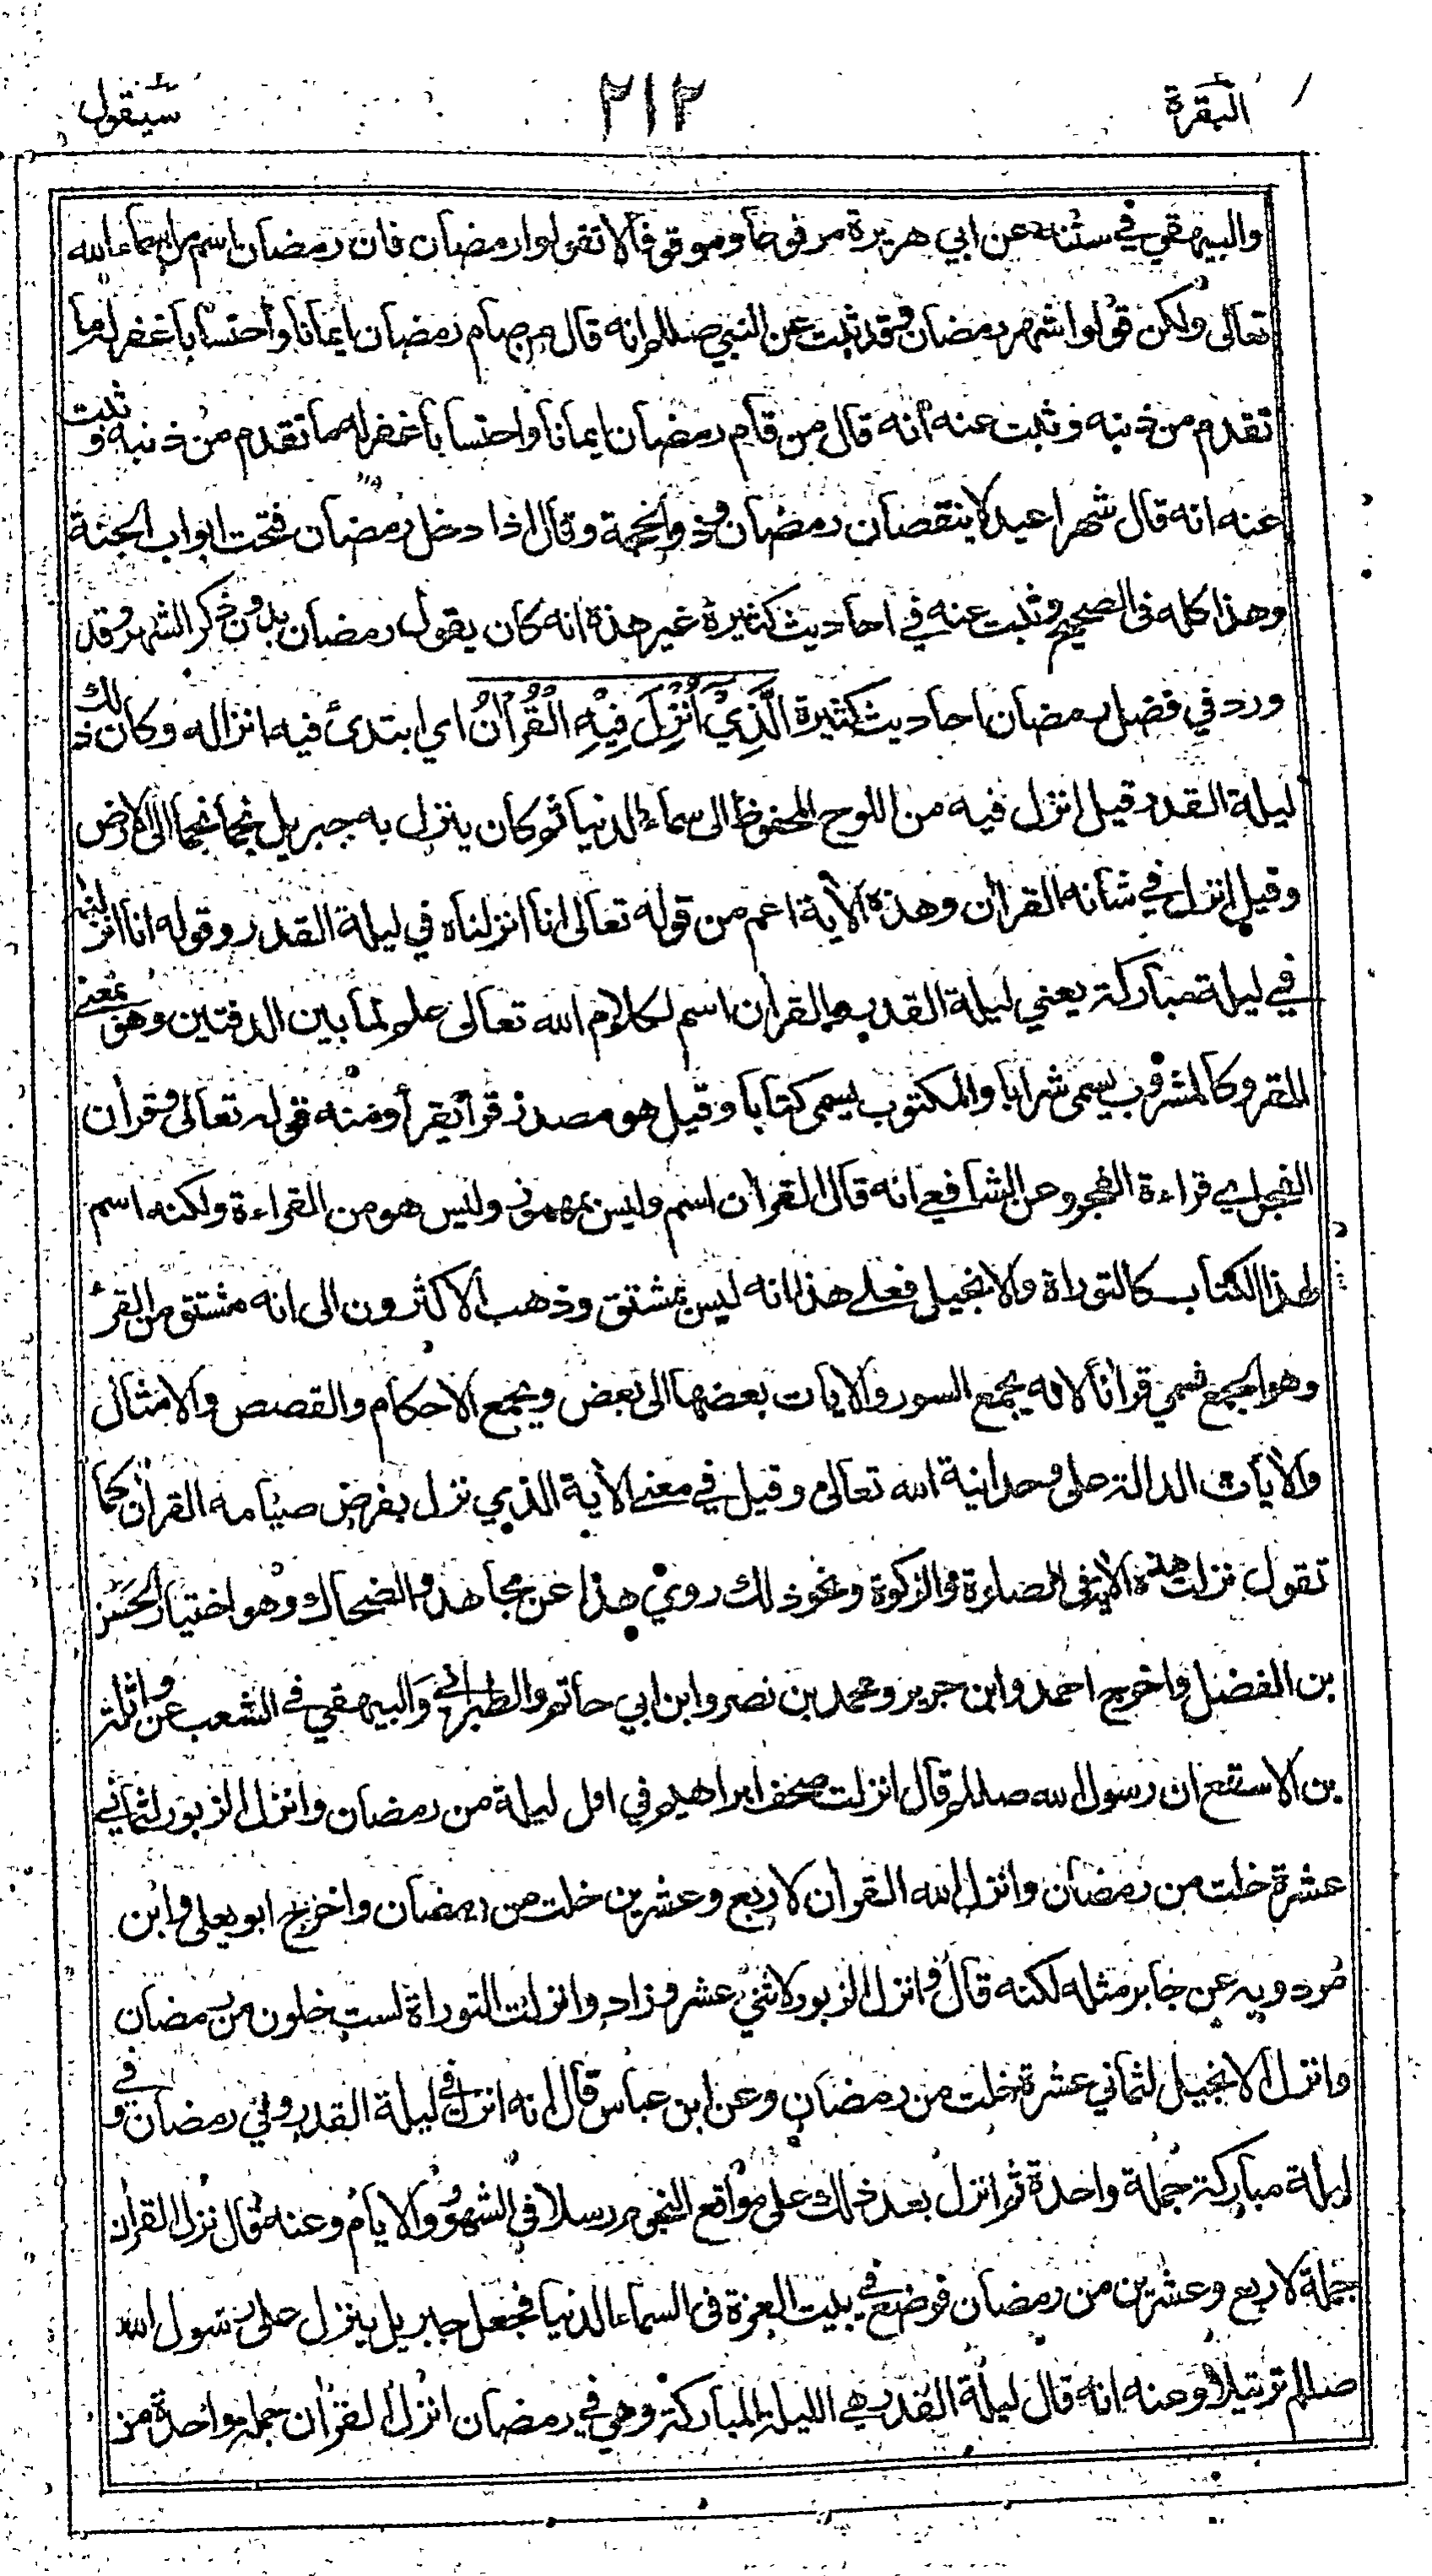 البقرة ٢١٢ سيقول
والبيهقي في سننه عن ابي هريرة مرفوعا وموقوفا لا تقولوا رمضان فان رمضان اسم من اسماء الله
تعالى ولكن قولوا شهر رمضان وقد ثبت عن النبي صللم انه قال من صام رمضان ايمانا واحتسابا غفر له ما
تقدم من ذنبه وثبت عنه انه قال من قام رمضان ايمانا واحتسابا غفر له ما تقدم من ذنبه وثبت
عنه انه قال شهرا عيد لا ينقصان رمضان وذو الحجة وقال اذا دخل رمضان فتحت ابواب الجنة
وهذا كله فى الصحيح وثبت عنه في احاديث كثيرة غير هذة انه كان يقول رمضان بدون ذكر الشهر وقد
ورد في فضل رمضان احاديث كثيرة الَّذِيْ اُنْزِلَ فِيْهِ الْقُرْاٰنُ اي ابتدئ فيه انزاله وكان ذلك
ليلة القدر قيل انزل فيه من اللوح المحفوظ الى سماء الدنيا ثم كان ينزل به جبريل نجما نجما الى الارض
وقيل انزل في شانه القرأن وهذه الأية اعم من قوله تعالى انا انزلناه في ليلة القدر وقوله انا انزلنه
في ليلة مباركة يعني ليلة القدر والقرأن اسم لكلام الله تعالى علم لما بين الدفتين وهو بمعنى
المقرو كالمشروب يسمى شرابا والمكتوب يسمى كتابا وقيل هو مصدر قرأ يقرأ ومنه قوله تعالى وقرأن
الفجر اي قراءة الفجر وعن الشافعي انه قال القرأن اسم وليس بمهموز وليس هو من القراءة ولكنه اسم
لهذا الكتاب كالتوراة والانجيل فعلى هذا انه ليس بمشتق وذهب الاكثرون الى انه مشتق من القرء
وهو الجمع فسمي قرأنا لانه يجمع السور والايات بعضها الى بعض ويجمع الاحكام والقصص والامثال
والأيات الدالة على وحدانية الله تعالى وقيل في معنى الأية الذي نزل بفرض صيامه القرأن كما
تقول نزلت هذة الأية فى الصلوة والزكوة ونحو ذلك روي هذا عن مجاهد والضحاك وهو اختيار الحسن
بن الفضل واخرج احمد وابن جرير ومحمد بن نصر وابن ابي حاتم والطبراني والبيهقي في الشعب عن واثلة
بن الاسقع ان رسول الله صللم قال انزلت صحف ابراهيم في اول ليلة من رمضان وانزل الزبور لثماني
عشرة خلت من رمضان وانزل الله القرأن لاربع وعشرين خلت من رمضان واخرج ابو يعلى وابن
مردويه عن جابر مثله لكنه قال وانزل الزبور لاثني عشر وزاد وانزلت التوراة لست خلون من رمضان
وانزل الانجيل لثماني عشرة خلت من رمضان وعن ابن عباس قال انه انزل في ليلة القدر وفي رمضان وفي
ليلة مباركة جملة واحدة ثم انزل بعد ذلك على مواقع النجوم رسلا فى الشهور والايام وعنه قال نزل القرأن
جملة لاربع وعشرين من رمضان فوضع في بيت العزة فى السماء الدنيا فجعل جبريل ينزل على رسول الله
صللم ترتيلا وعنه انه قال ليلة القدر هي الليلة المباركة وهي في رمضان انزل القرأن جملة واحدة من